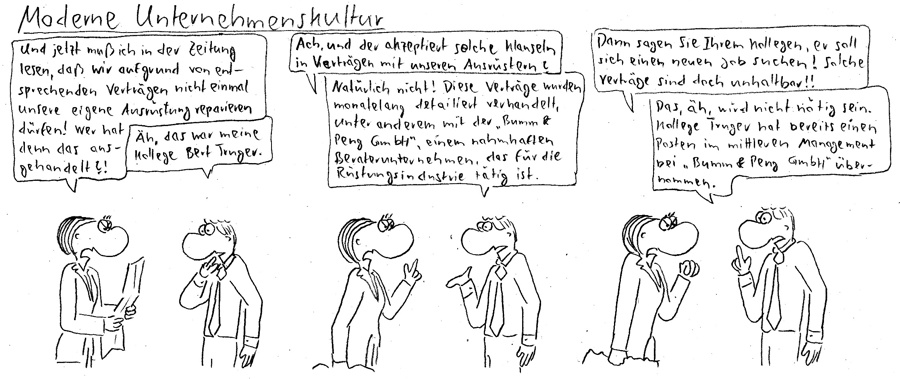 Moderne Unternehmenskultur
Und jetzt muß ich in der Zeitung
lesen, daß wir aufgrund von ent-
sprechenden Verträgen nicht einmal
unsere eigene Ausrüstung reparieren
dürfen! Wer hat
denn das aus-
gehandelt?!
Äh, das war meine
Kollege Bert Truger.
Ach, und der akzeptiert solche Klauseln
in Verträgen mit unseren Ausrüstern?
Natürlich nicht! Diese Verträge wurden
monatelang detailiert verhandelt,
unter anderem mit der „Bumm &
Peng GmbH“, einem nahmhaften
Beraterunternehmen, das für die
Rüstungsindustrie tätig ist.
Dann sagen Sie Ihrem Kollegen, er soll
sich einen neuen Job suchen! Solche
Verträge sind doch unhaltbar!!
Das, äh, wird nicht nötig sein.
Kollege Truger hat bereits einen
Posten im mittleren Management
bei „Bumm & Peng GmbH“ über-
nommen.